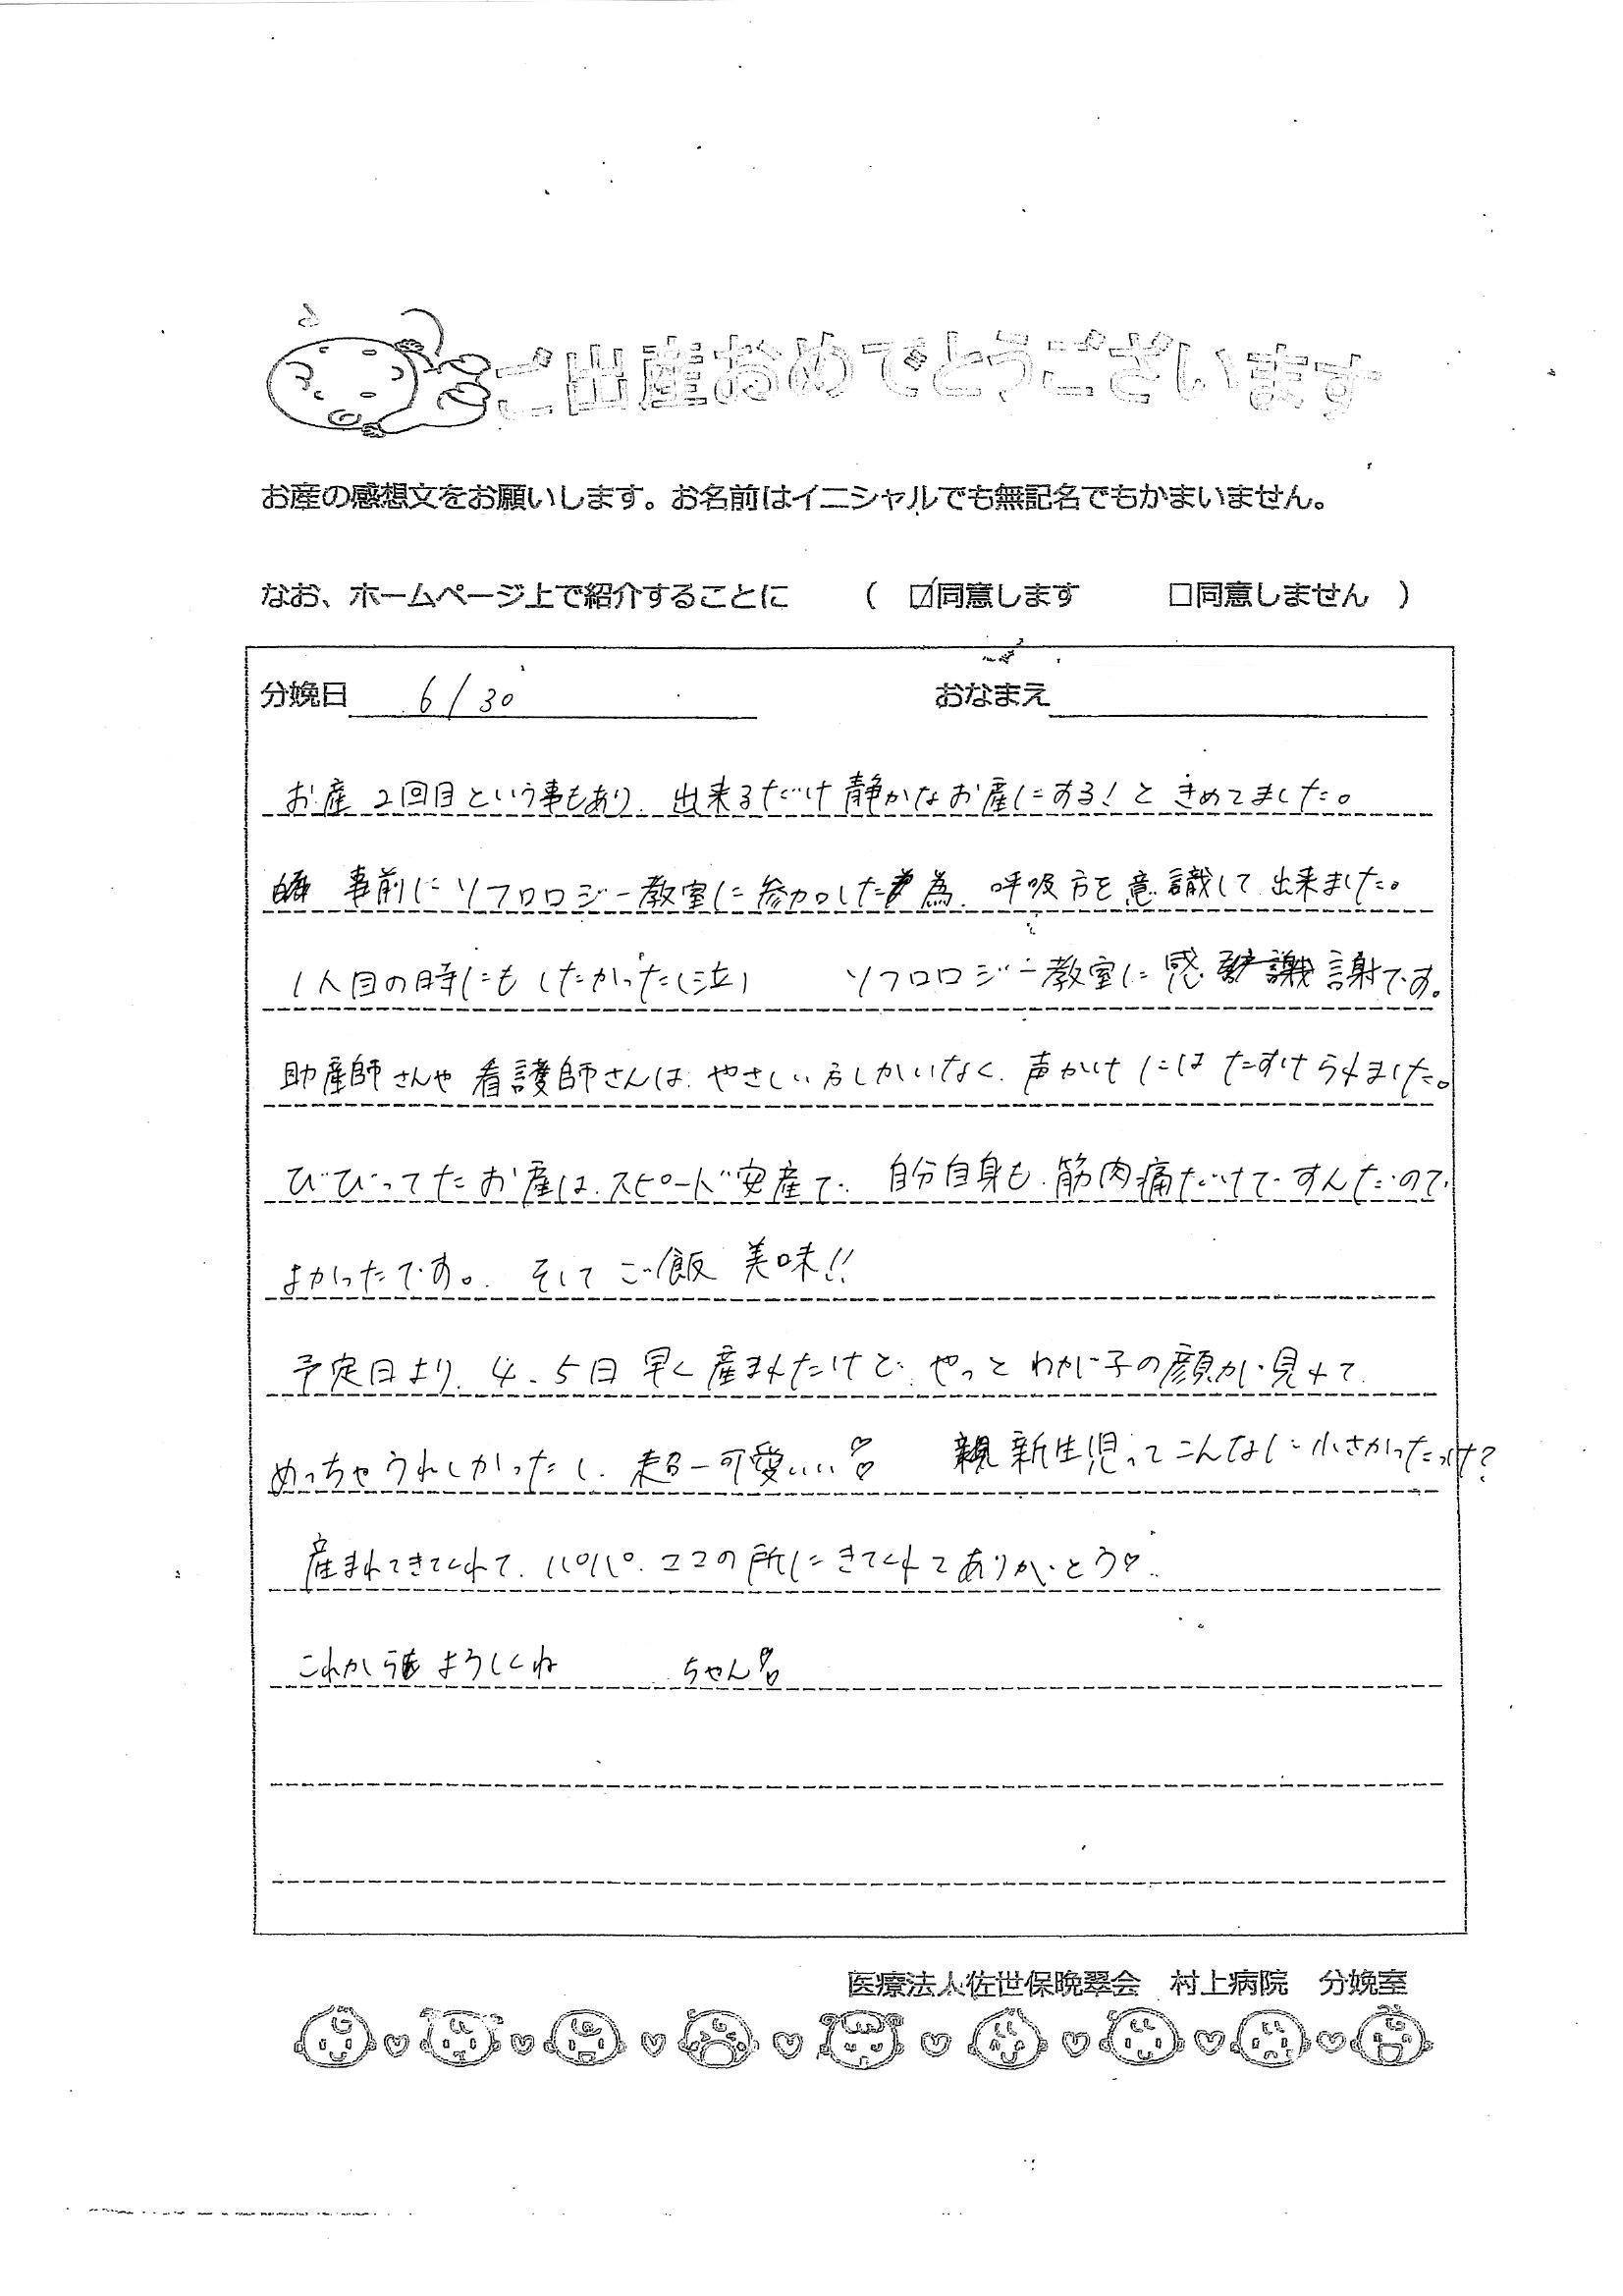 ご出産おめでとうございます
お産の感想文をお願いします。お名前はイニシャルでも無記名でもかまいません。
なお、ホームページ上で紹介することに （ ☑同意します □同意しません ）
分娩日 6/30 おなまえ
お産2回目という事もあり、出来るだけ静かなお産にする！ときめてました。
事前にソフロロジー教室に参加した為、呼吸方を意識して出来ました。
1人目の時にもしたかった(泣) ソフロロジー教室に感謝です。
助産師さんや看護師さんは、やさしい方しかいなく、声かけにはたすけられました。
びびってたお産は、スピード安産で、自分自身も、筋肉痛だけですんだので
よかったです。そしてご飯美味!!
予定日より、4、5日早く産まれたけど、やっとわが子の顔が見れて、
めっちゃうれしかったし、超ー可愛いい♡♡ 新生児ってこんなに小さかったっけ？
産まれてきてくれて、パパ、ママの所にきてくれてありがとう♡
これからもよろしくね ちゃん♡♡
医療法人佐世保晩翠会 村上病院 分娩室